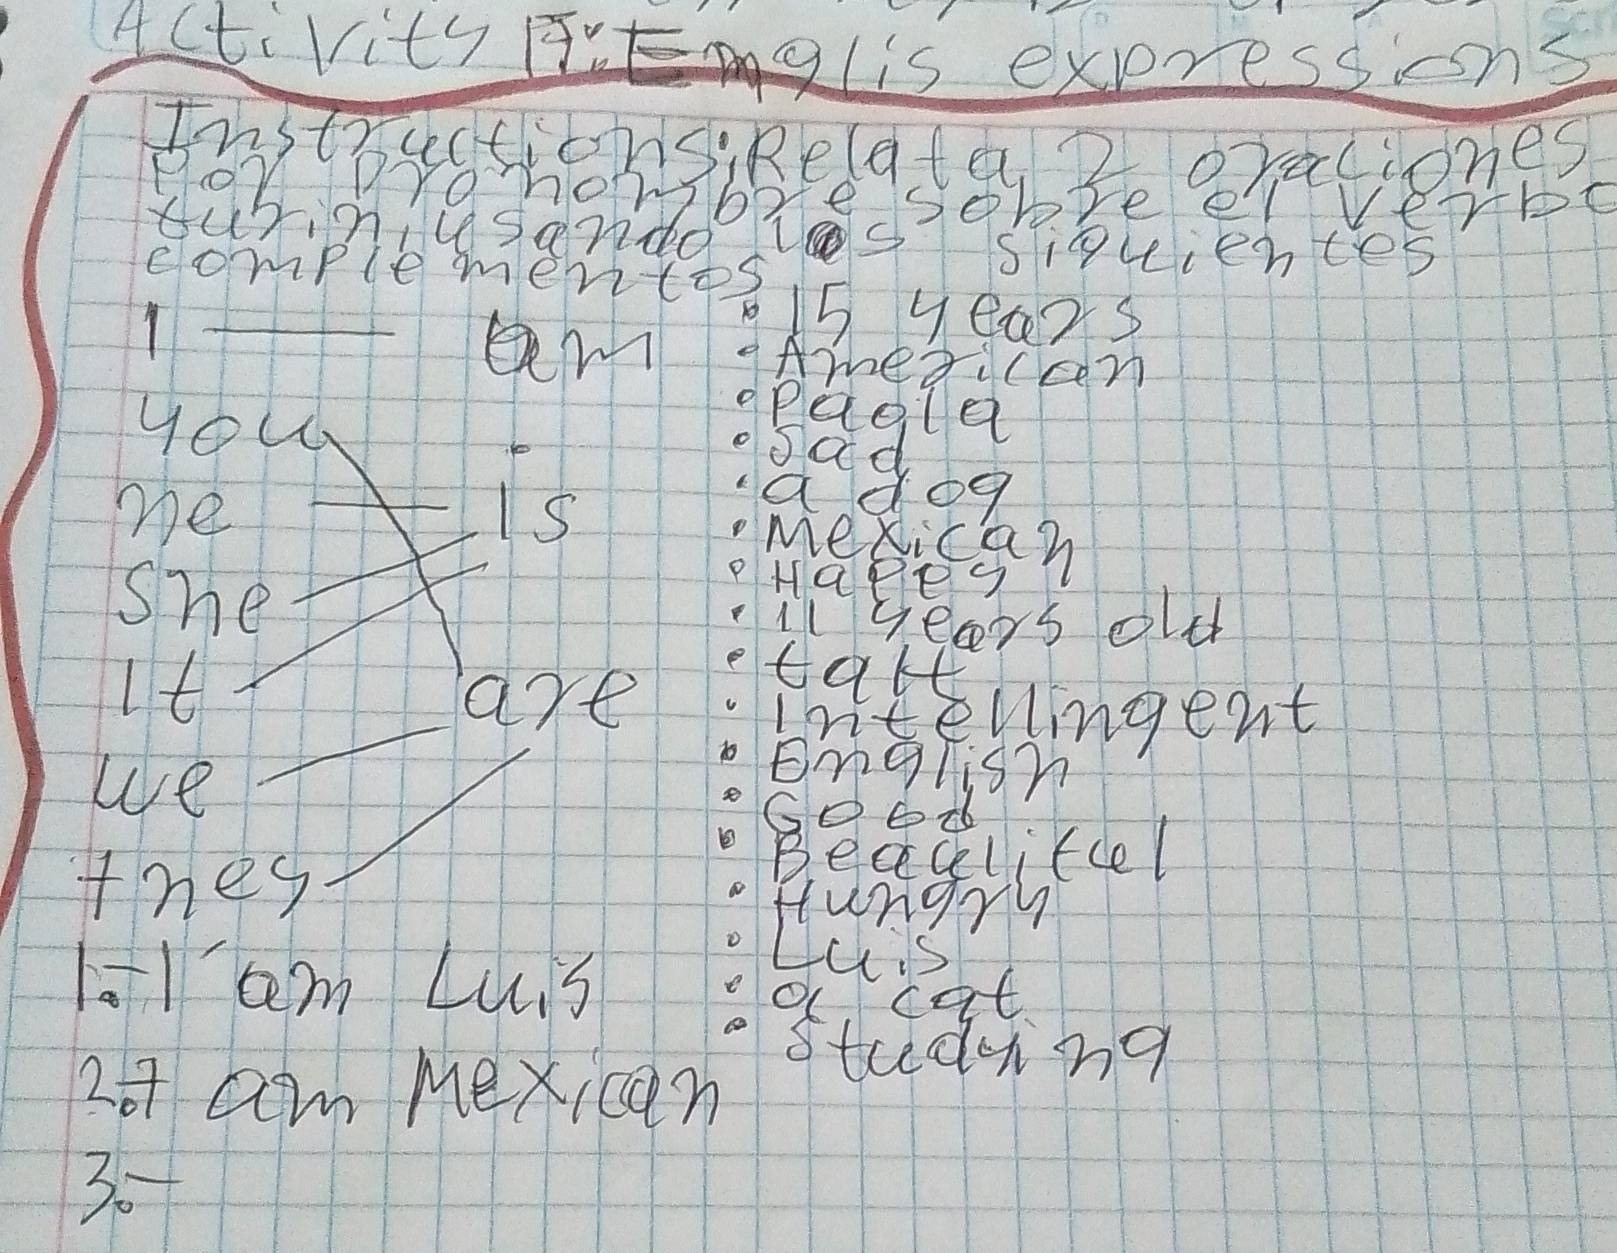 Activity 17: Emglis expressions
Instructions: Relata 2 oraciones
por pronombre sobre el verbo
usando los siguientes
complementos
I am
you
he is
she
It are
we
they
• 15 years
• American
• Paola
• Sad
• a dog
• Mexican
• Happy
• 11 years old
• tall
• Intellingent
• English
• Good
• Hungry
• Luis
• a cat
• Studying
1.- I´am Luis
2.- I am Mexican
3.-